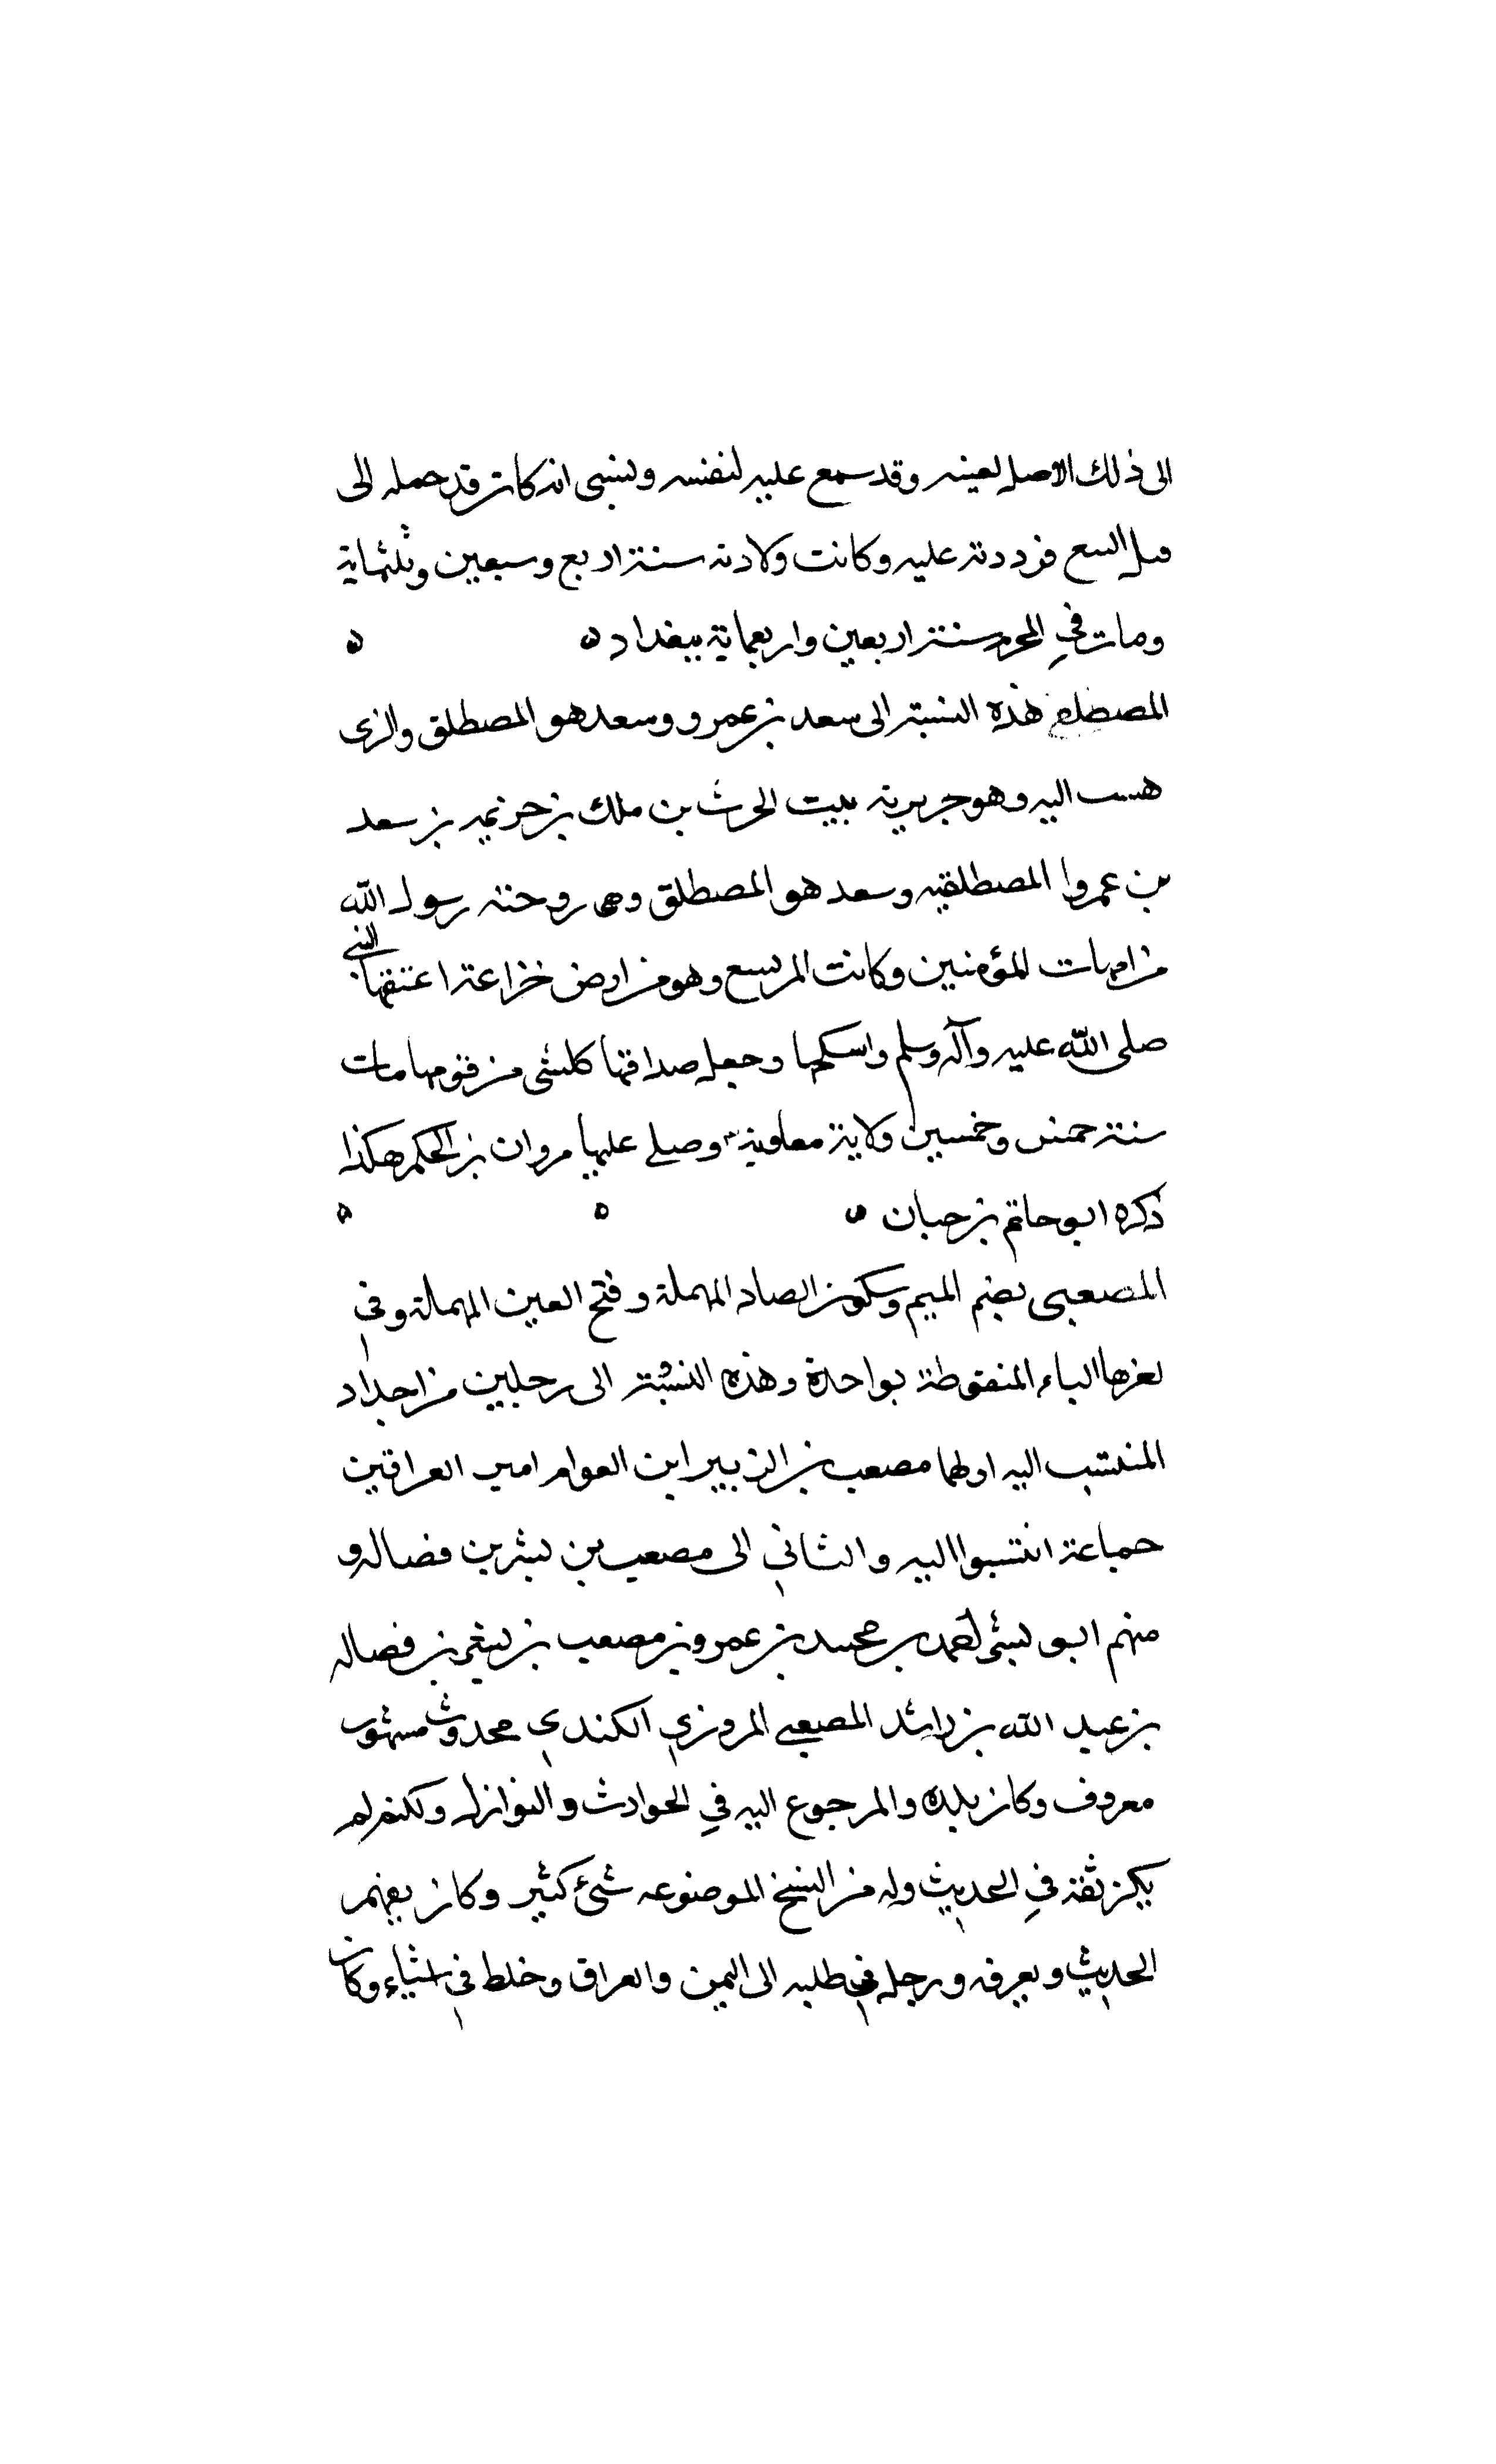 الى ذلك الاصل لعينه وقد سمع عليه لنفسه ولنسى انه كان قد حمله الى
قبل السع فرددته عليه وكانت ولادته سنة اربع وسبعين وثلثماية
ومات في المحرم سنة اربعين واربعماية ببغداد ه ه
المصطلقي هذه النسبة الى سعد بن عمرو وسعد هو المصطلق والذى
هسب اليه وهو جريرية ببيت الحرث بن ملك بن حزيمه بن سعد
بن عمروا المصطلقيه وسعد هو المصطلق وهى روحته رسول الله
من امهات المؤمنين وكانت المريسع وهو من ارض خزاعة اعتقها النبي
صلى الله عليه وآله وسلم واسكحها وجعل صداقها كلشى من قومها مات
سنة خمس وخمسين ولاية معاوية وصلى عليها مروان بن الحكم هكذا
ذكره ابو حاتم بن حبان ه ه ه
المصعبى بضم الميم وسكون الصاد المهملة وفتح العين المهملة وفي
لغزها الباء المنقوطة بواحدة وهذه النسبة الى رجلين من اجداد
المنتسب اليه اولهما مصعب بن الزبير ابن العوام امير العراقين
جماعة انتسبوا اليه والثاني الى مصعب بن بشر بن فضاله و
منهم ابو بشر احمد بن محمد بن عمرو بن مصعب بن بشر بن فضاله
بن عبد الله بن راشد المصعبي المروزي الكندي محدوث مشهور
معروف وكان بلده والمرجوع اليه في الحوادث والنوازل ولكنه لم
يكن ثقة في الحديث وله من النسخ الموضوعه شئ كثير وكان يفهم
الحديث ويعرفه ورحل في طلبه الى اليمن والعراق وخلط في اشياء وكان